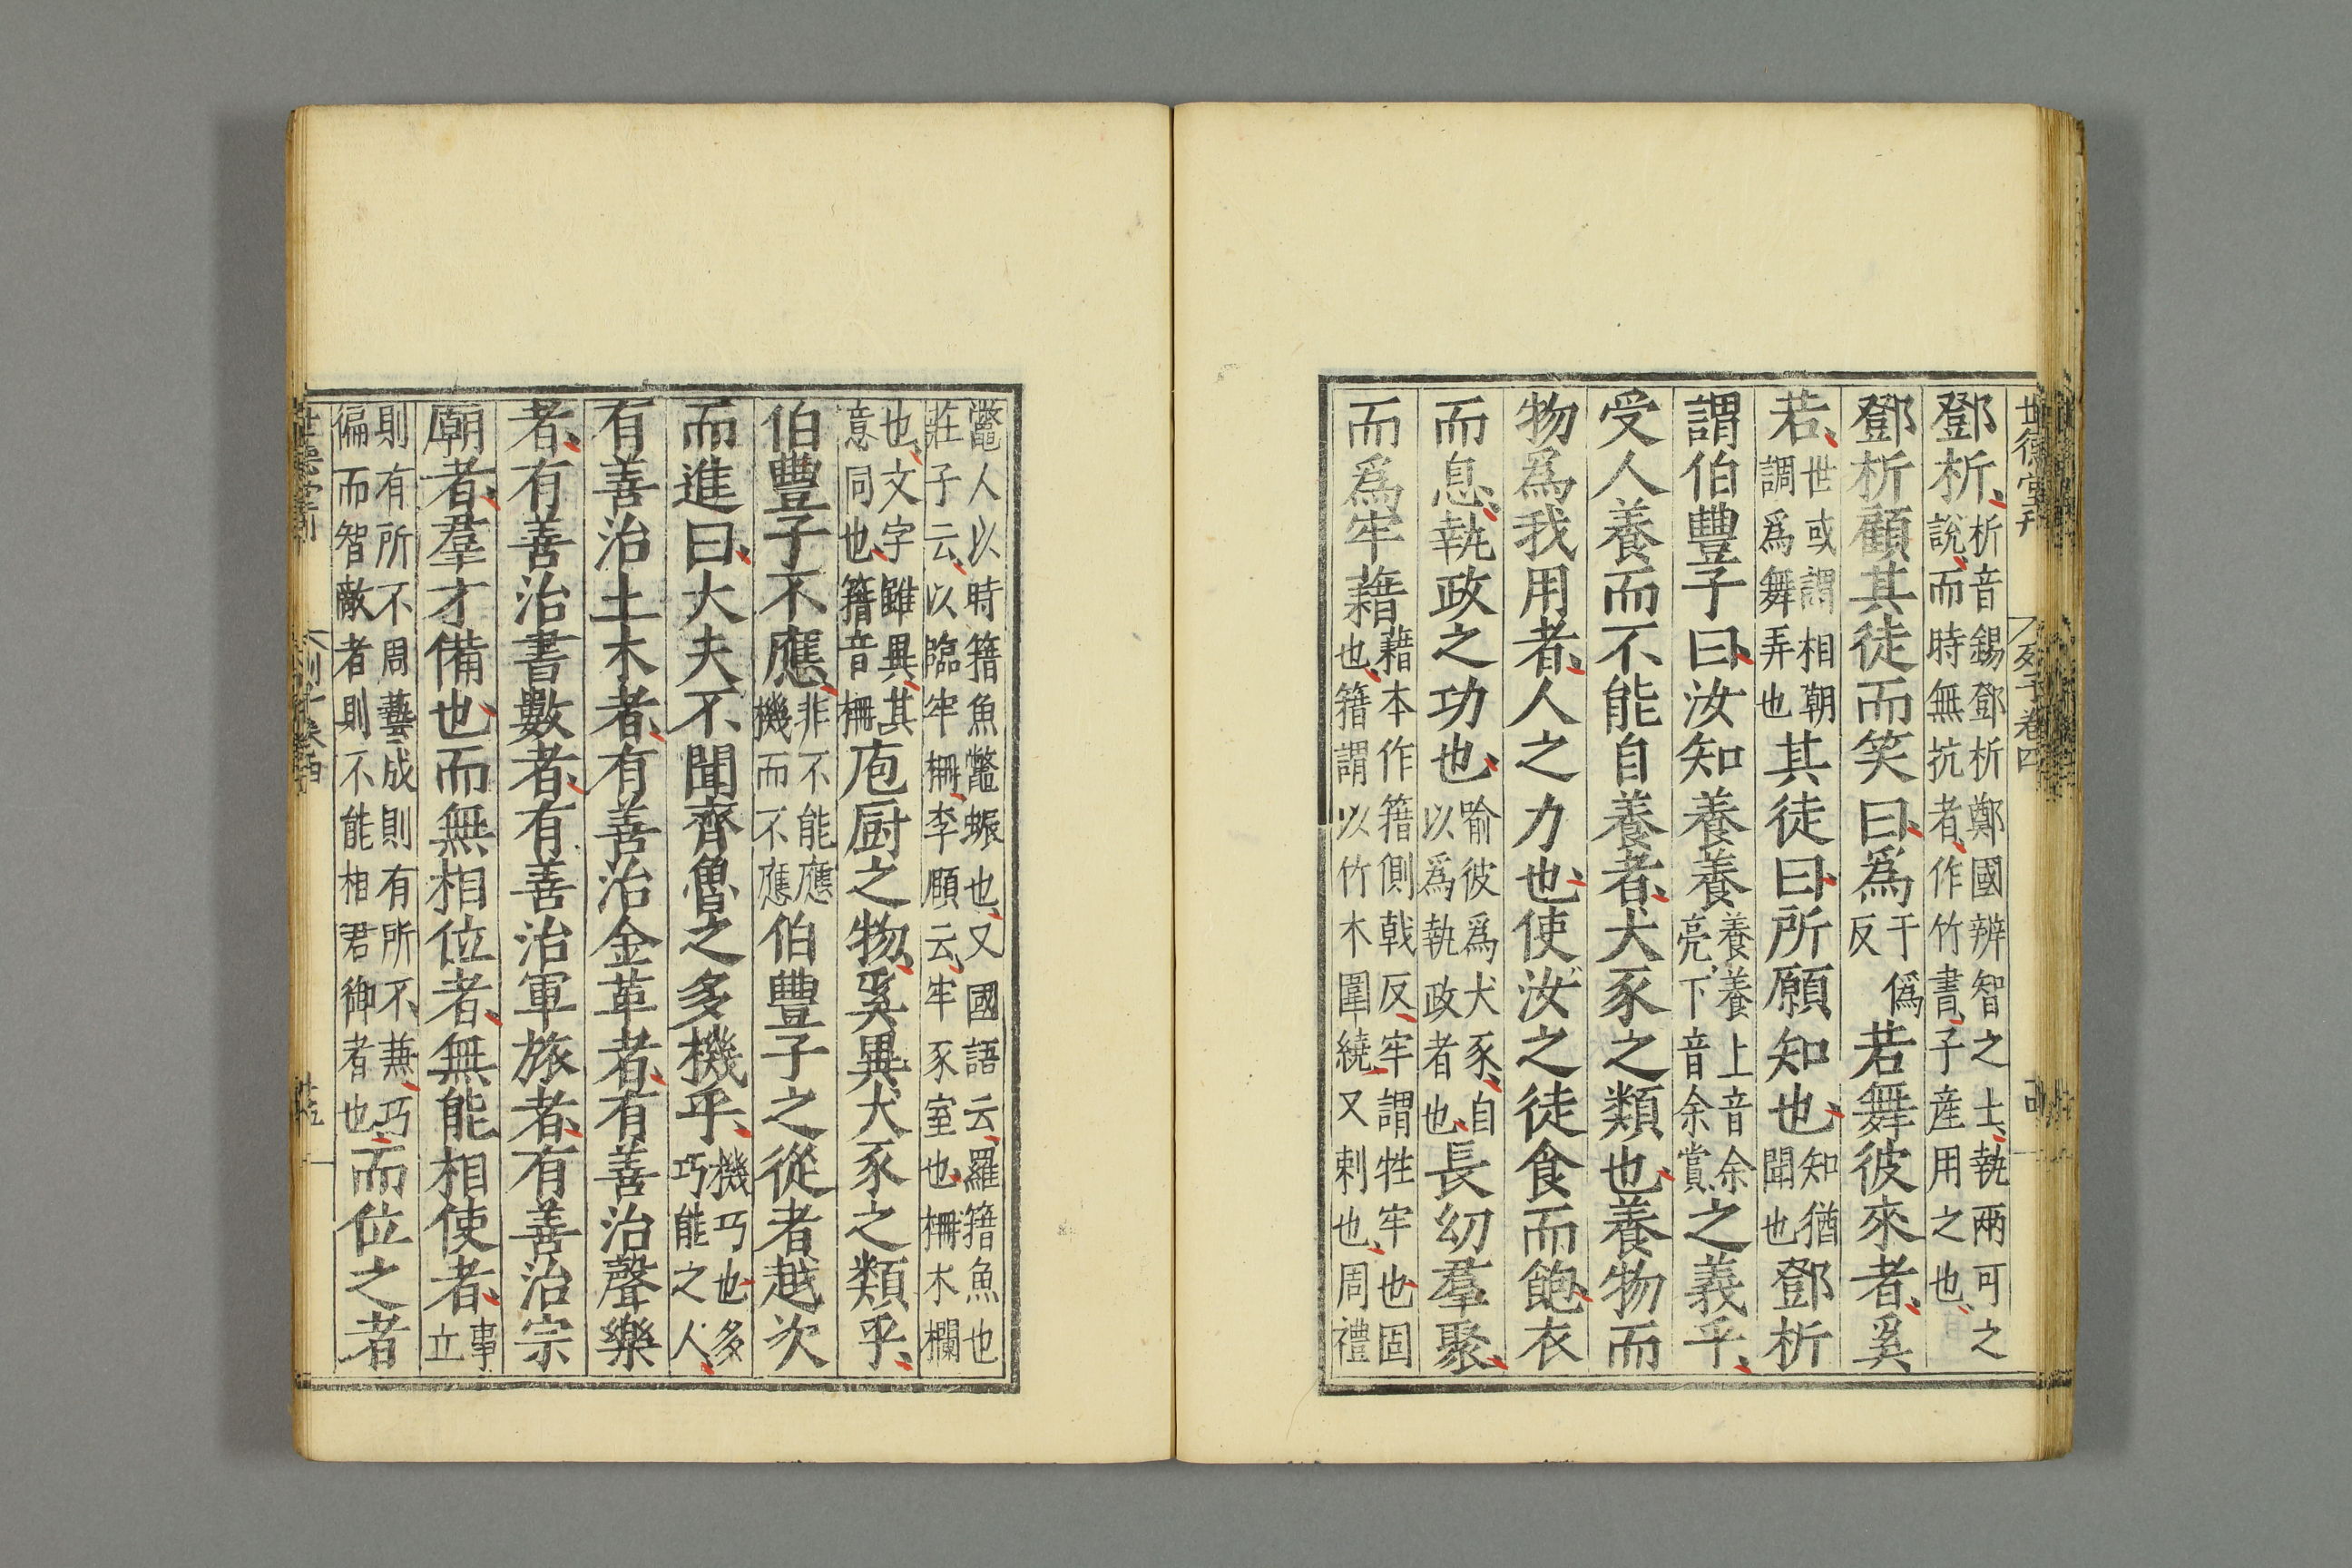 世德堂刊 列子卷四 十四
鄧析析音錫鄧析鄭國辨智之士執兩可之說而時無抗者作竹書子産用之也
鄧析顧其徒而笑曰爲于僞反若舞彼來者奚
若世或謂相朝調爲舞弄也其徒曰所願知也知猶聞也鄧析
謂伯豐子曰汝知養養養養上音余亮下音余賞之義乎
受人養而不能自養者犬豕之類也養物而
物爲我用者人之力也使汝之徒食而飽衣
而息執政之功也喻彼爲犬豕自以爲執政者也長幼羣聚
而爲牢藉藉本作籍側戟反牢謂牲牢也固也籍謂以竹木圍繞又刺也周禮
鼈人以時籍魚鼈蜄也又國語云羅籍魚也莊子云以臨牢柵李頤云牢豕室也柵木欄
也文字雖異其意同也籍音柵庖厨之物奚異犬豕之類乎
伯豐子不應非不能應機而不應伯豐子之從者越次
而進曰大夫不聞齊魯之多機乎機巧也多巧能之人
有善治土木者有善治金革者有善治聲樂
者有善治書數者有善治軍旅者有善治宗
廟者羣才備也而無相位者無能相使者事立
則有所不周藝成則有所不兼巧偏而智敵者則不能相君御者也而位之者